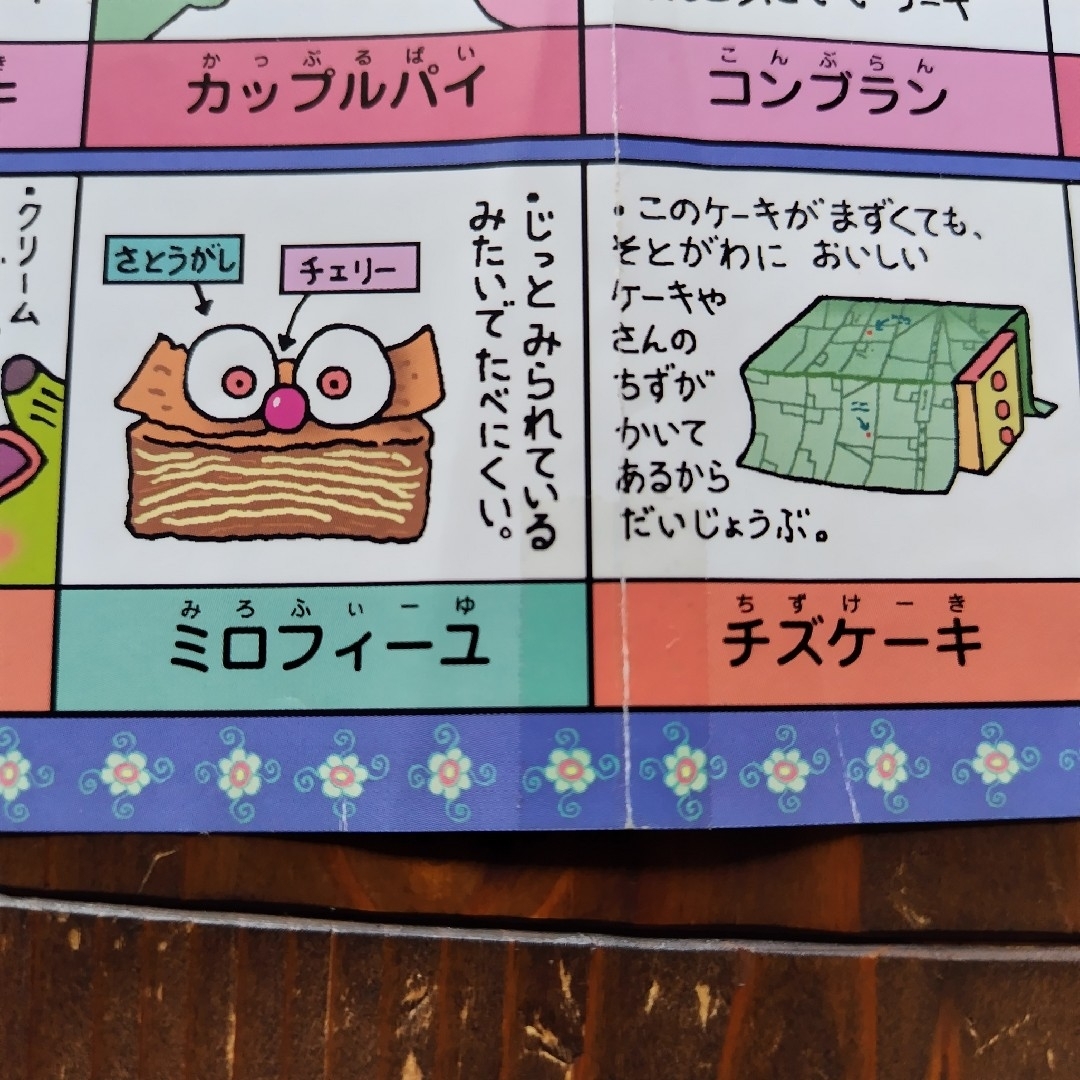 かっぷるぱい
カップルパイ
こんぶらん
コンブラン
・クリーム
さとうがし
チェリー
・じっとみられている
みたいでたべにくい。
みろふぃーゆ
ミロフィーユ
・このケーキがまずくても、
そとがわに おいしい
ケーキや
さんの
ちずが
かいて
あるから
だいじょうぶ。
ちずけーき
チズケーキ